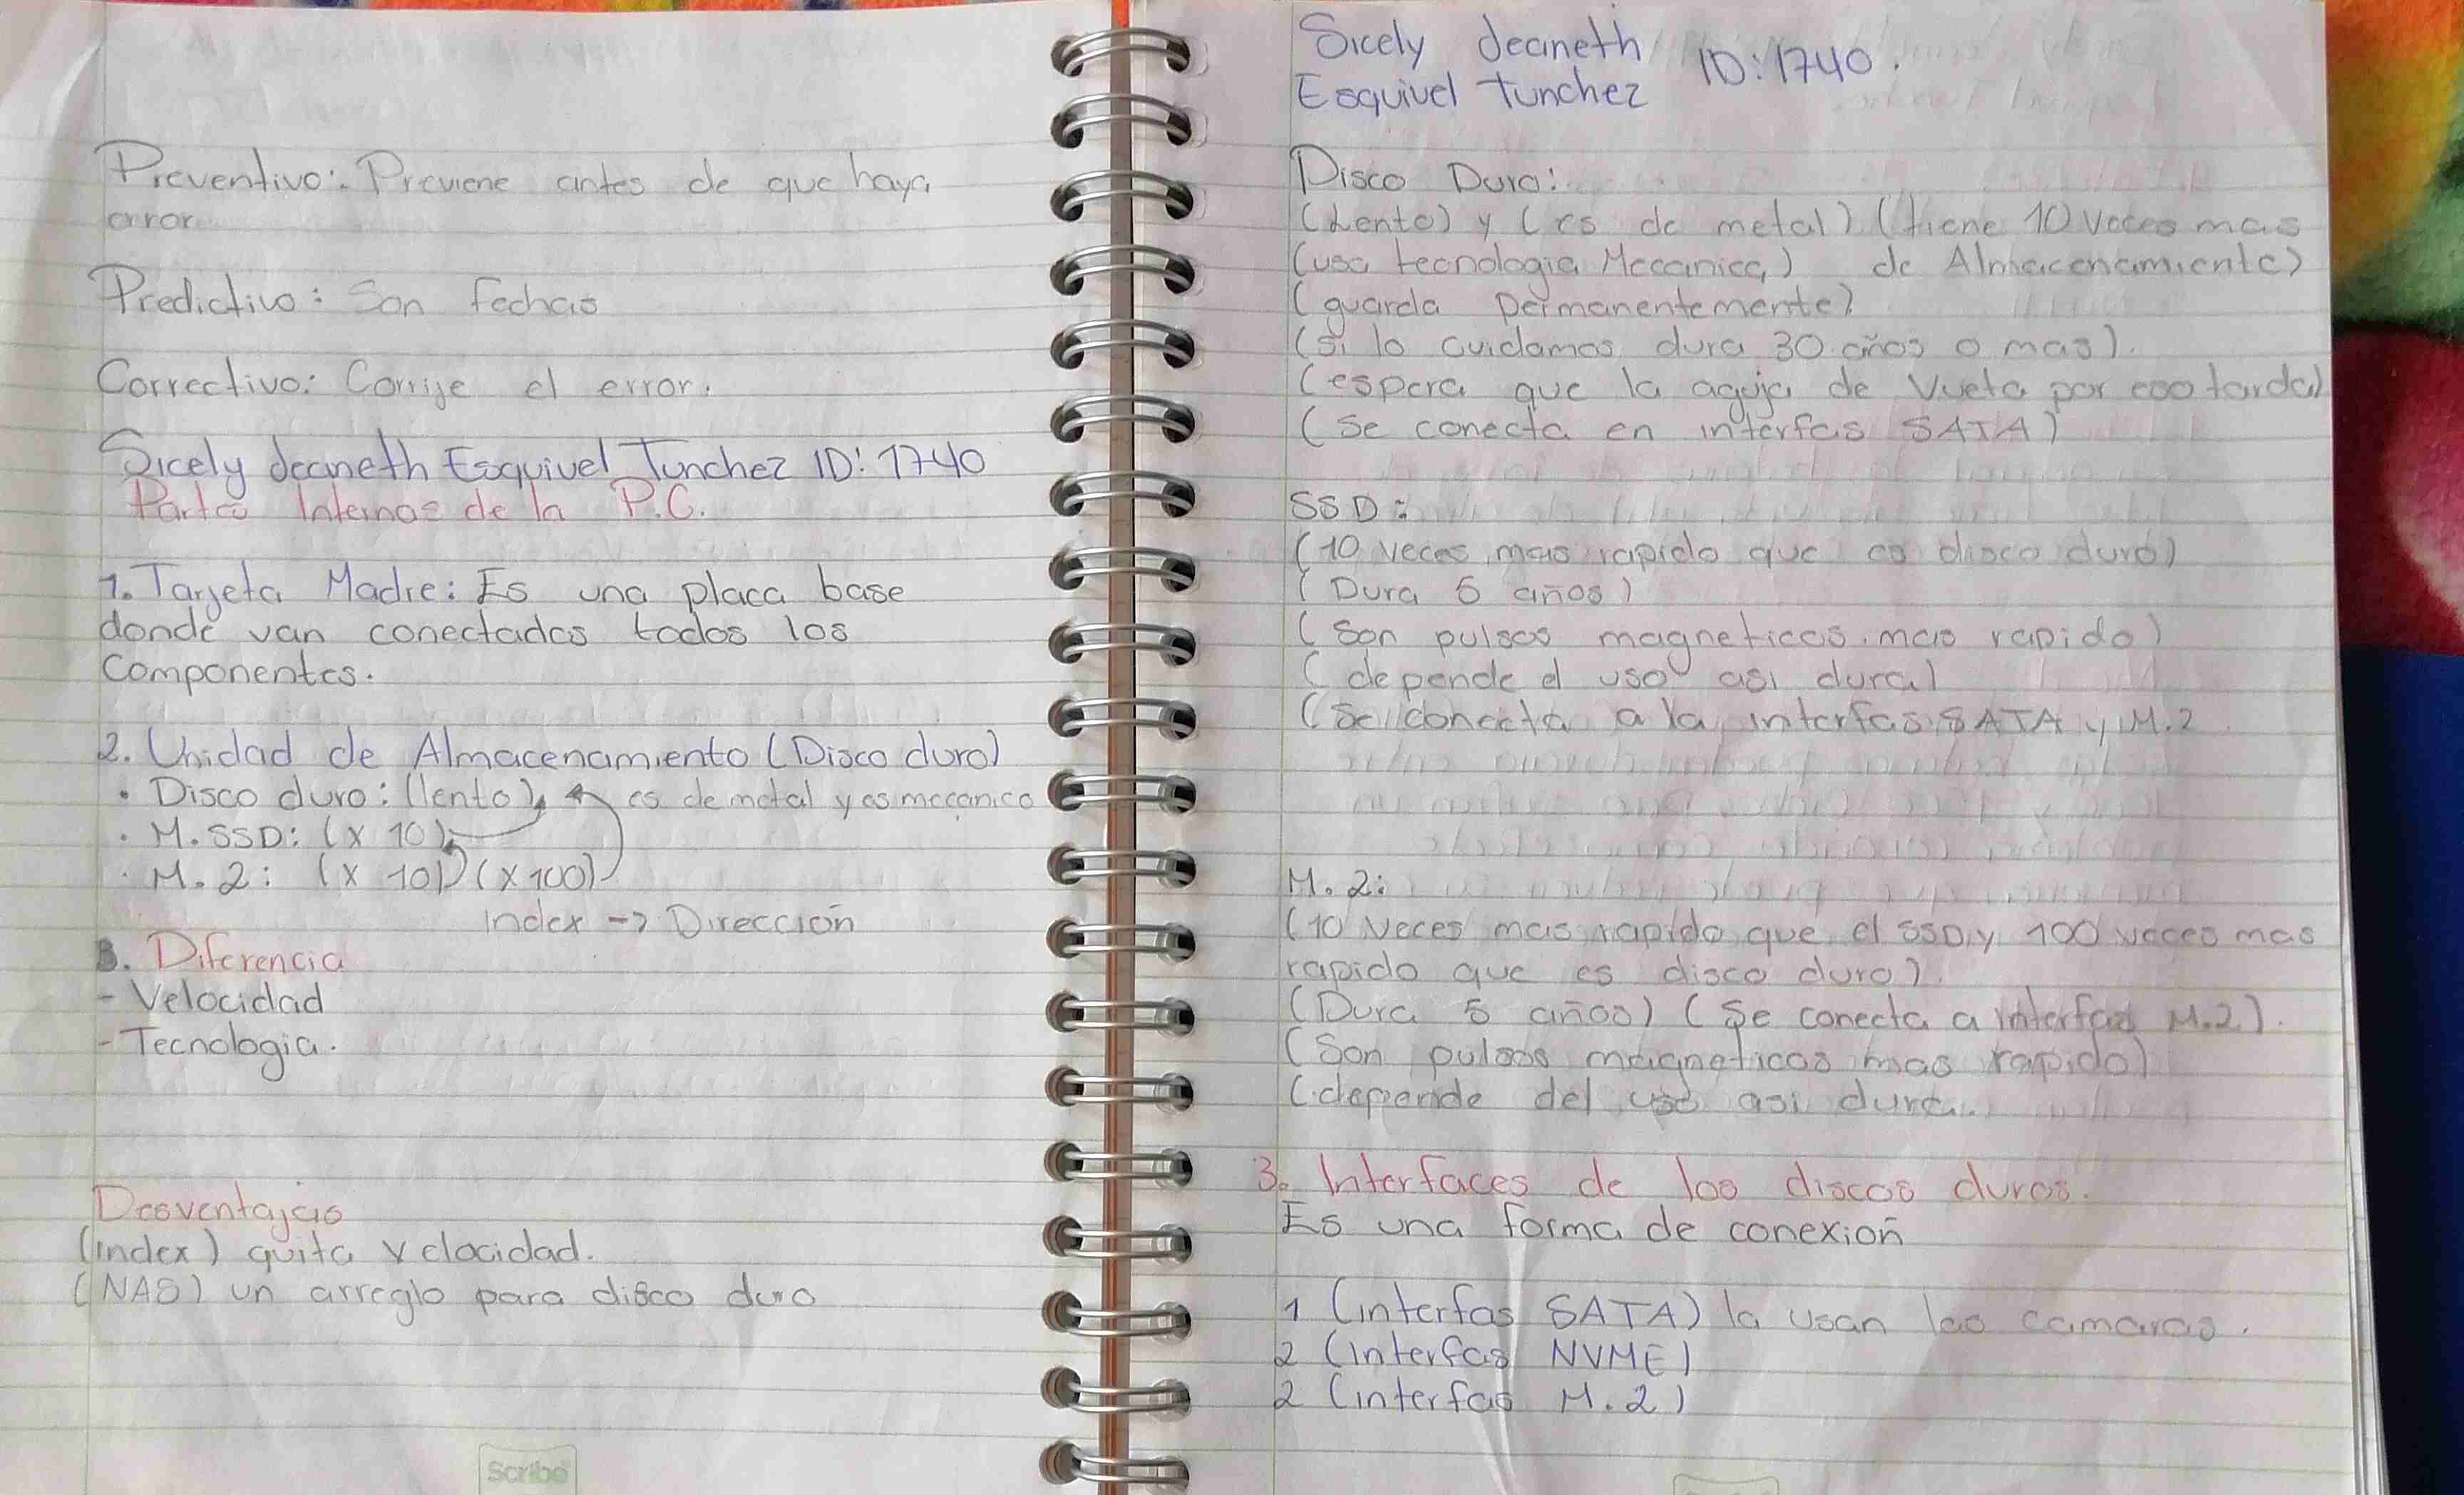 Preventivo: Previene antes de que haya
error
Predictivo: Son fechas
Correctivo: Corrije el error.
Sicely Jeaneth Esquivel Tunchez ID: 1740
Partes Internas de la P.C.
1. Tarjeta Madre: Es una placa base
donde van conectados todos los
Componentes.
2. Unidad de Almacenamiento (Disco duro)
• Disco duro: (lento) es de metal y es mecanico
• M.SSD: (x 10)
• M.2: (x 10) (x100)
Index -> Dirección
3. Diferencia
- Velocidad
- Tecnologia.
Desventajas
(Index) quita velocidad.
(NAS) un arreglo para disco duro
Scribe
Sicely Jeaneth
Esquivel Tunchez ID: 1740.
Disco Duro:
(Lento) y (es de metal) (tiene 10 veces mas
(usa tecnologia Mecanica) de Almacenamiento)
(guarda permanentemente)
(si lo cuidamos dura 30 años o mas).
(espera que la aguja de Vueta por eso tarda)
(Se conecta en interfas SATA)
SSD:
(10 veces mas rapido que es disco duro)
(Dura 5 años)
(Son pulsos magneticos mas rapido)
(depende el uso asi dura)
(Se conecta a la interfas SATA y M.2
M.2:
(10 Veces mas rapido que el SSD y 100 veces mas
rapido que es disco duro).
(Dura 5 años) (Se conecta a interfas M.2).
(Son pulsos magneticos mas rapido)
(depende del uso asi dura.
3. Interfaces de los discos duros.
Es una forma de conexión
1 (interfas SATA) la usan las camaras.
2 (interfas NVME)
2 (interfas M.2)